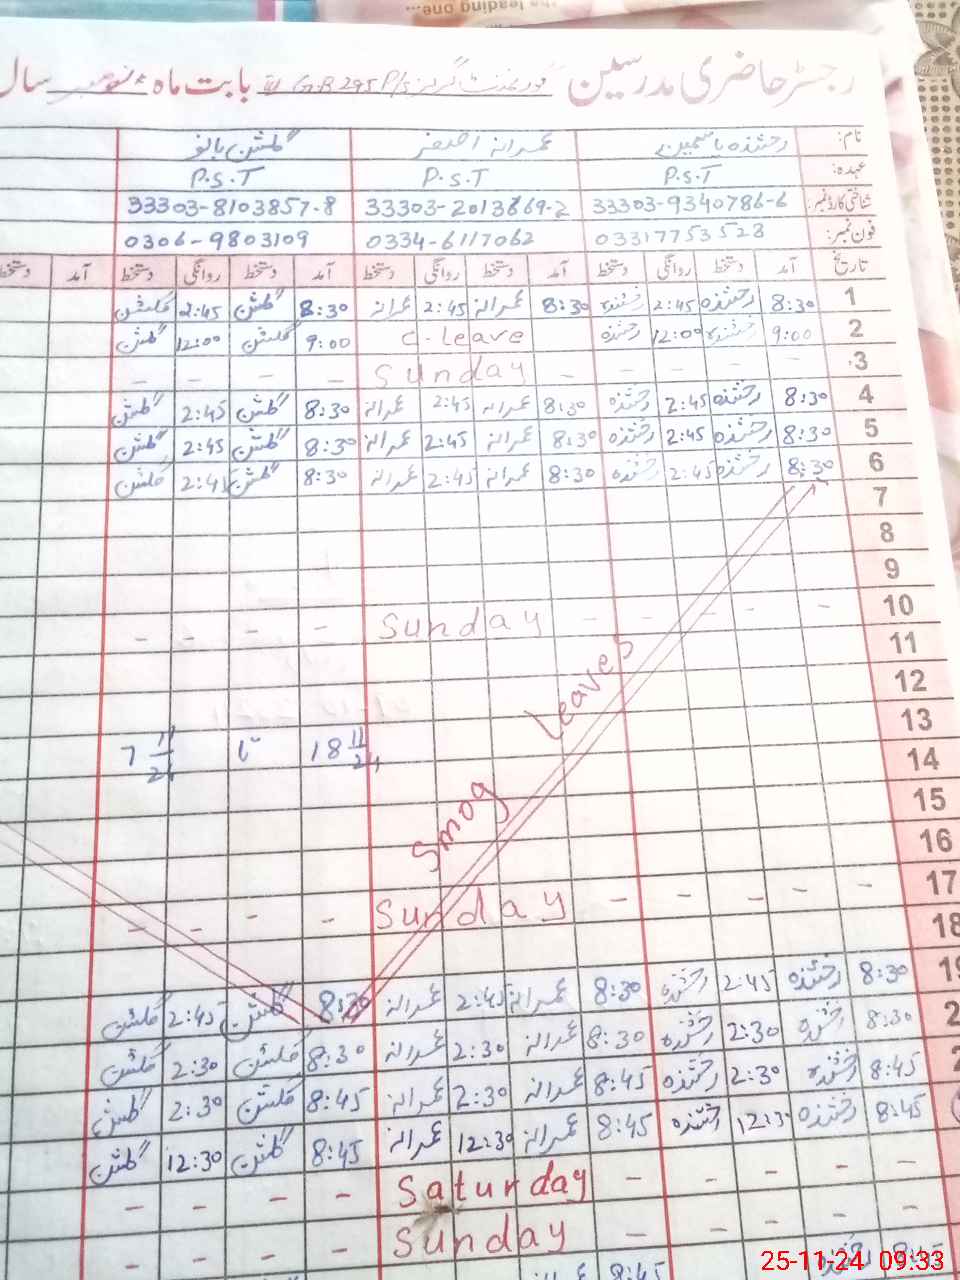 the leading one...
رجسٹر حاضری مدرسین گورنمنٹ گرلز P/S 295 G.B بابت ماہ نومبر سال
نام: رخشندہ یاسمین عمرانہ اصغر گلشن بانو
عہدہ: P.S.T P.S.T P.S.T
شناختی کارڈ نمبر: 33303-9340786-6 33303-2013869-2 33303-8103857-8
فون نمبر: 03317753528 0334-6117062 0306-9803109
تاریخ آمد دستخط روانگی دستخط آمد دستخط روانگی دستخط آمد دستخط روانگی دستخط آمد دستخط
1 8:30 رخشندہ 2:45 رخشندہ 8:30 عمرانہ 2:45 عمرانہ 8:30 گلشن 2:45 گلشن
2 9:00 رخشندہ 12:00 رخشندہ C.Leave 9:00 گلشن 12:00 گلشن
3 - - - - - Sunday - - - -
4 8:30 رخشندہ 2:45 رخشندہ 8:30 عمرانہ 2:45 عمرانہ 8:30 گلشن 2:45 گلشن
5 8:30 رخشندہ 2:45 رخشندہ 8:30 عمرانہ 2:45 عمرانہ 8:30 گلشن 2:45 گلشن
6 8:30 رخشندہ 2:45 رخشندہ 8:30 عمرانہ 2:45 عمرانہ 8:30 گلشن 2:45 گلشن
7
8
9
10 - - - - Sunday - - - -
11
12
Smog Leaves
13
14 18 11/24 تا 7 11/24
15
16
17 - - - - Sunday - - - -
18
19 8:30 رخشندہ 2:45 رخشندہ 8:30 عمرانہ 2:45 عمرانہ 8:30 گلشن 2:45 گلشن
2 8:30 رخشندہ 2:30 رخشندہ 8:30 عمرانہ 2:30 عمرانہ 8:30 گلشن 2:30 گلشن
2 8:45 رخشندہ 2:30 رخشندہ 8:45 عمرانہ 2:30 عمرانہ 8:45 گلشن 2:30 گلشن
8:45 رخشندہ 12:30 رخشندہ 8:45 عمرانہ 12:30 عمرانہ 8:45 گلشن 12:30 گلشن
- - - - Saturday - - - -
- - - - Sunday - - - -
8:45 رخشندہ 8:45 عمرانہ
25-11-24 09:33